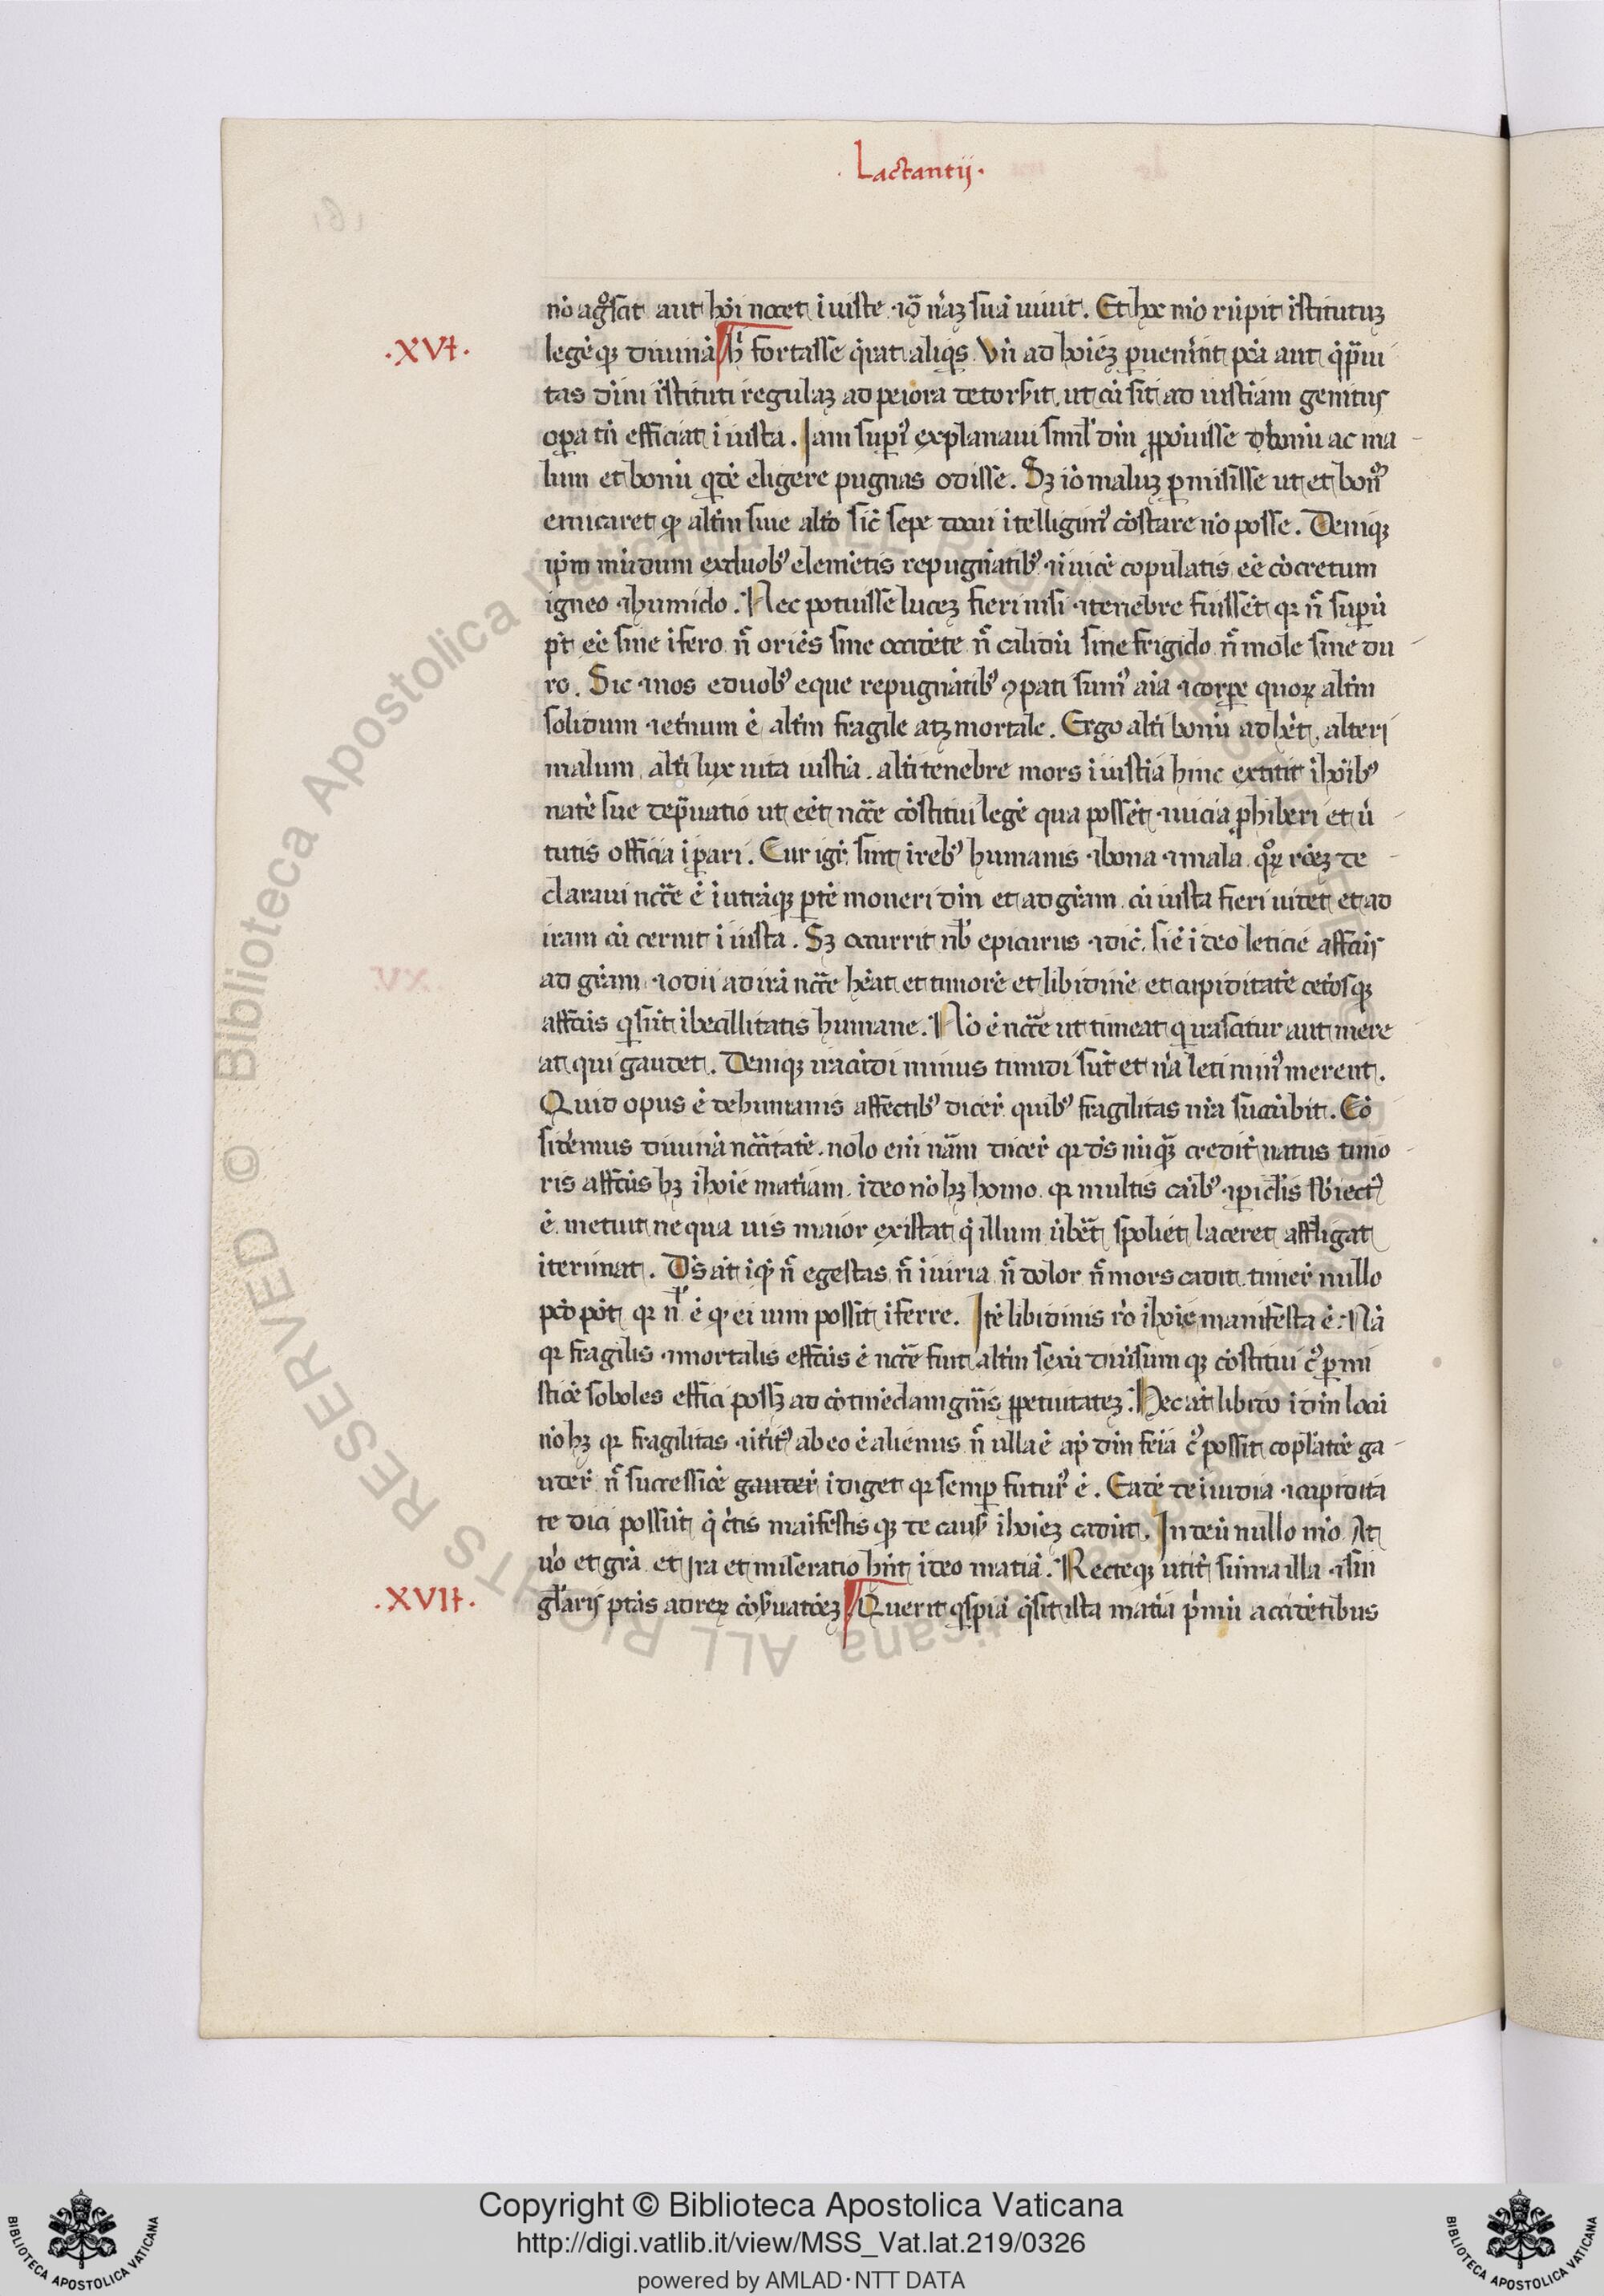 · Lactantij ·
nō agͦscit aut hōi nocet iiuiste ·iꝺ̄ nr̄aꝫ suā uiuit. Et hoc mō rūpit īstitutuꝫ
·XVI·
legēqꝫ diuinā h̓ fortasse q̄rat aliqͥs Vn̄ ad hoīeꝫ ꝑuenīnt pcā aut q̓ p̄ui
tas diīni īstituti regulaꝫ ad peiora detorsit ut cū sit ad iustiām genitus
opa tn̄ efficiat iiusta. Iam supͥ explanaui simĺ dm̄ ꝓpoūisse bonū ac ma
lum et bonū qͥdē eligere pugnas odisse. Sꝫ iō maluꝫ ꝑmisisse ut et bonū
emicaret qꝫ altm̄ sine alt̄o sic̄ sepe docui ītelligimꝰ cōstare nō posse. Deniqꝫ
ip̄m mūdum ex duobꝰ elemētis repugnātibꝰ ·iiuicē copulatis eē cōcretum
igneo ·humido. Nec potuisse luceꝫ fieri nisi ·tenebre fuissēt qꝛ n̄ supū
pt̄ eē sine īfero n̄ oriēs sine occidēte n̄ calidū sine frigido n̄ mole sine du
ro. Sic ·nos e duobꝰ eque repugnātibꝰ ꝯpati sumꝰ aīa ·corpe quoꝝ altm̄
solidum ·etn̄um ē altm̄ fragile atqꝫ mortale. Ergo alti bonū adhēt alteri
malum alti lux uita iustīa alti tenebre mors iiustīa hinc extitit ihoībꝰ
natē sue dep̄uatio ut eēt ncc̄e cōstitui legē qua possēt ·uicia ꝓhiberi et ū
tutis officia īꝑari. Cur igr̄ sint irebꝰ humanis ·bona ·mala qͦꝝ rōeꝫ de
claraui ncc̄e ē iutrāqꝫ ꝑtē moueri dm̄ et ad grām cū iusta fieri uidet et ad
iram cū cernit iiusta. Sꝫ occurrit nb̄ epicurus ·dic̄ si ē i deo leticie affcūs
ad grām ·odii ad irā ncc̄e hēat et timorē et libidinē et cupiditatē cet̄osqꝫ
affcūs qͥ sūt ībecillitatis humane. Nō ē ncc̄e ut timeat qͥ irascitur aut mere
at qui gaudet. Deniqꝫ iracūdi minus timidi sūt et nā leti minꝰ merent.
Quid opus ē de humanis affectibꝰ dicer̄ quibꝰ fragilitas nr̄a succūbit. Cō
sidēmus diuinā ncc̄itatē nolo eni nām dicer̄ qꝛ ds̄ nūqͣ credit̄ natus timo
ris affcūs hꝫ ihoīe matiām ideo nō hꝫ homo qꝛ multis cāibꝰ ·piclis sbiectꝰ
ē metuit ne qua uis maior existat q̄ illum ūbēt spoliet laceret affligat
iterimat. Ds̄ at̄ iqͦ n̄ egestas n̄ iiuria n̄ dolor n̄ mors cadit timer̄ nullo
pcō pōt qꝛ n̄ ē qꝫ ei uim possit īferre. Itē libidinis rō ihoīe manifesta ē. Nā
qꝛ fragilis ·mortalis effcūs ē ncc̄e fuit altm̄ sexū diuīsum qꝫ cōstitui cꝰ ꝑmi
sticē soboles effici possꝫ ad cōtinēdam gn̄is ꝓpetuitateꝫ. Hec at̄ libido i dm̄ locū
nō hꝫ qꝛ fragilitas ·ītitꝰ ab eo ē alienus n̄ ulla ē ap̄ dm̄ femīa cꝰ possit coplatcē ga
uder̄ n̄ successicē gauder̄ idiget qꝛ semp̄ futurꝰ ē. Eadē de iuidia ·cupidita
te dici possūt q̄ c̄tis maifestis qꝫ de causꝭ ihoieꝫ cadūt. In deū nullo mō At
uō et grā et ira et miseratio hn̄t i deo matiā. Recteqꝫ utit̄ suma illa ·sin
·XVII·
gl̄aris ptās ad reꝝ cōseruatōeꝫ Querit qͥspiā q̄ sit ista matīa pͥmū accidētibus
Copyright © Biblioteca Apostolica Vaticana
http://digi.vatlib.it/view/MSS_Vat.lat.219/0326
powered by AMLAD·NTT DATA
BIBLIOTECA APOSTOLICA VATICANA
BIBLIOTECA APOSTOLICA VATICANA